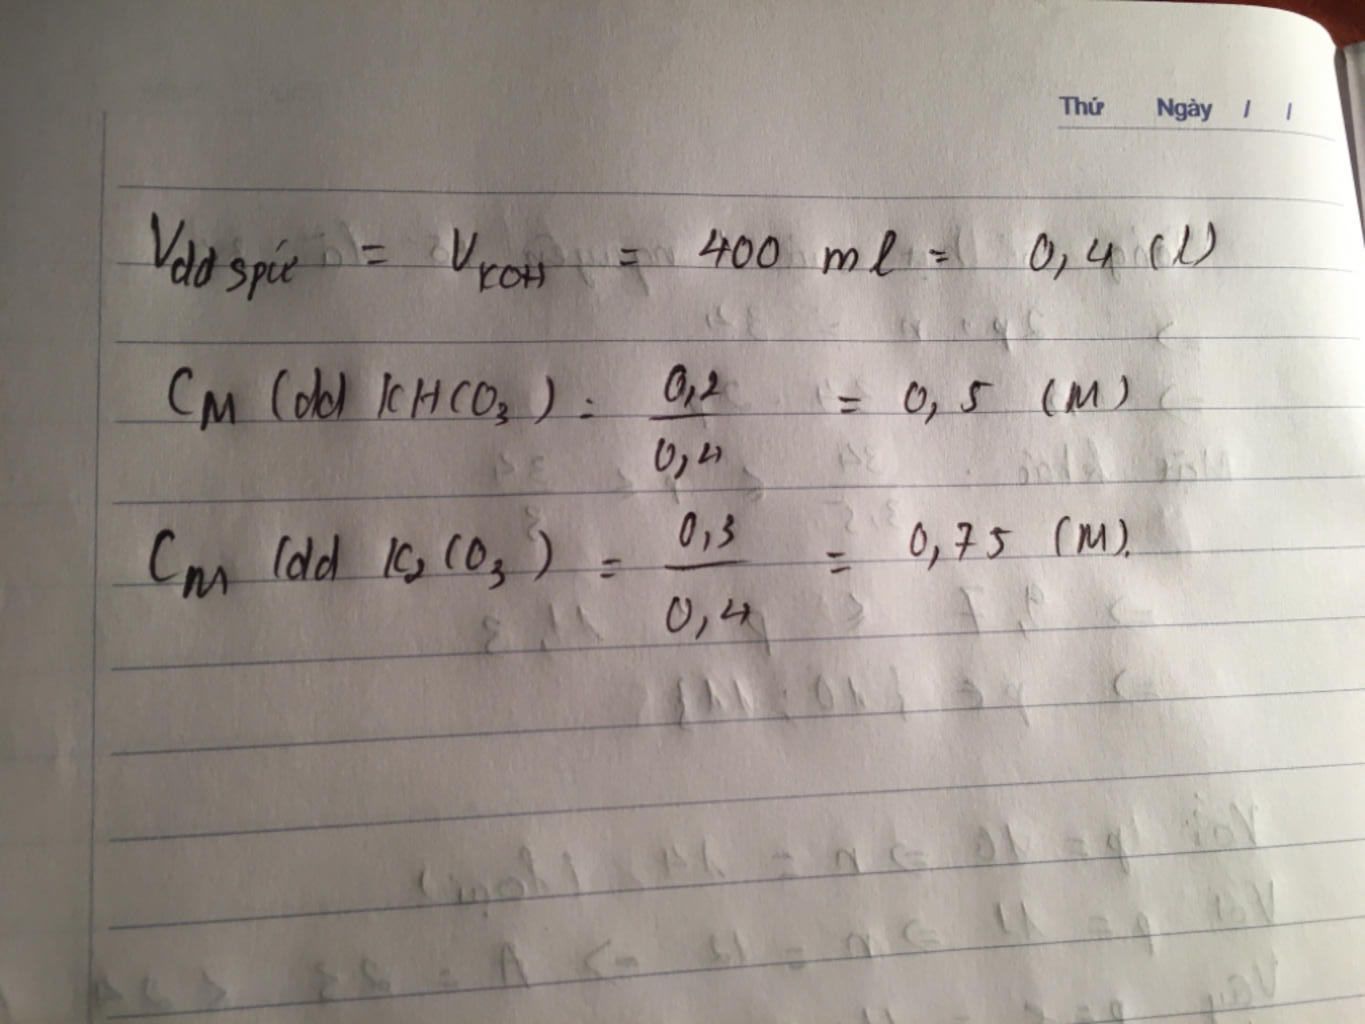 Thứ Ngày / /
Vdd spư = VKOH = 400 ml = 0,4 (l)
CM (dd KHCO3) = 0,2 / 0,4 = 0,5 (M)
CM (dd K2CO3) = 0,3 / 0,4 = 0,75 (M).